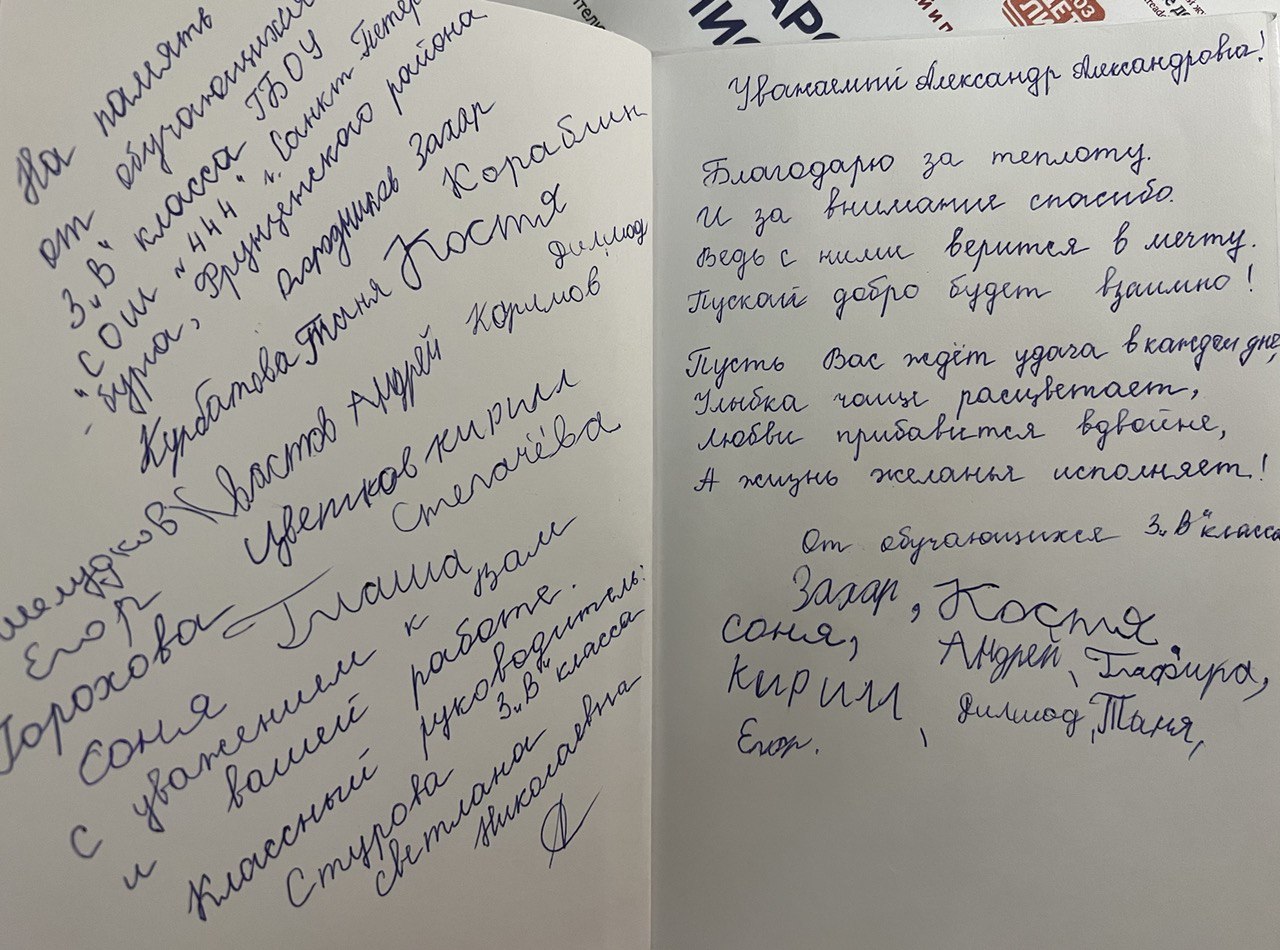 На память
от обучающихся
3 „В" класса ГБОУ
"СОШ № 444" г. Санкт-Петер-
-бурга, Фрунзенского района
Захар
Кораблин
Курбатова Таня Костя
Хвастов Андрей Каримов Дилшод
Шелудков
Егор
Цветков Кирилл
Горохова
Соня
Глаша Стегачёва
С уважением к вам
и вашей работе.
Классный руководитель:
3 „В" класса
Стурова
Светлана
Николаевна
Уважаемый Александр Александрович!
Благодарю за теплоту.
И за внимание спасибо.
Ведь с ними верится в мечту.
Пускай добро будет взаимно!
Пусть Вас ждёт удача в каждом дне,
Улыбка чаще расцветает,
Любви прибавится вдвойне,
А жизнь желанья исполняет!
От обучающихся 3 „В" класса
Захар, Костя,
Соня, Андрей, Глафира,
Кирилл, Дилшод, Таня,
Егор.